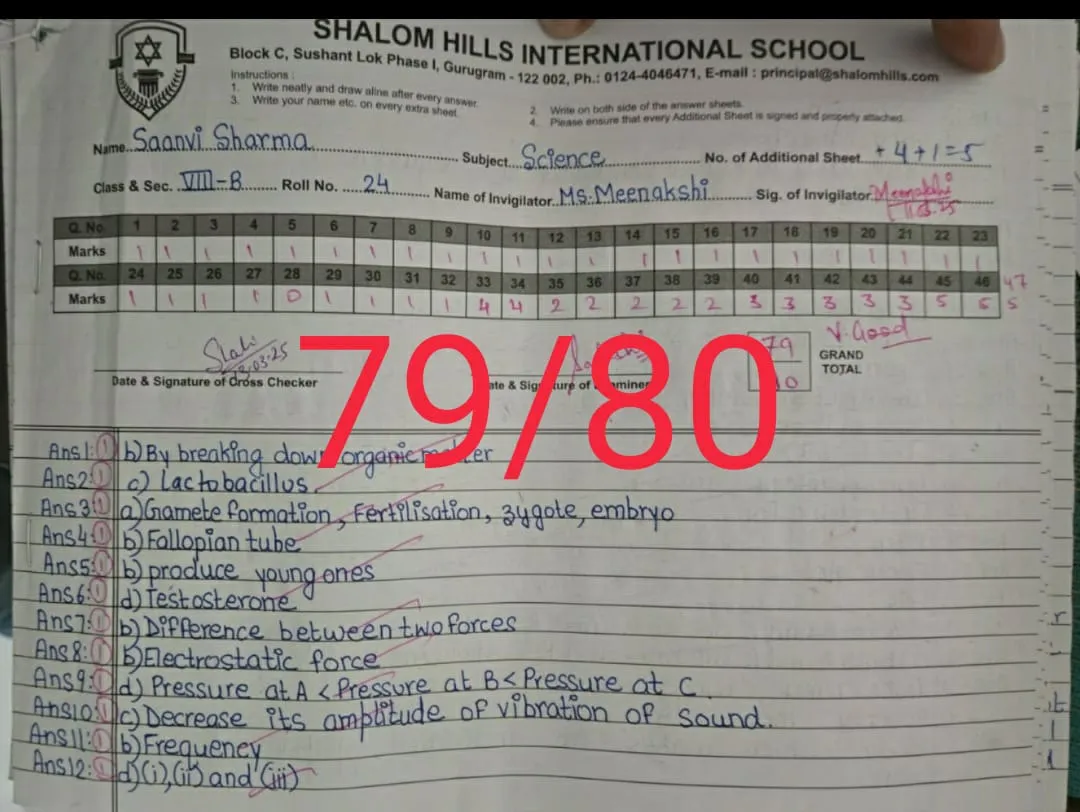 SHALOM HILLS INTERNATIONAL SCHOOL
Block C, Sushant Lok Phase I, Gurugram - 122 002, Ph.: 0124-4046471, E-mail : principal@shalomhills.com
Instructions :
1. Write neatly and draw aline after every answer.
2. Write on both side of the answer sheets.
3. Write your name etc. on every extra sheet.
4. Please ensure that every Additional Sheet is signed and properly attached.
Name..Saanvi Sharma Subject..Science No. of Additional Sheet +4+1=5
Class & Sec. VIII-B Roll No. 24 Name of Invigilator..Ms. Meenakshi Sig. of Invigilator Meenakshi
Q. No. 1 2 3 4 5 6 7 8 9 10 11 12 13 14 15 16 17 18 19 20 21 22 23
Marks 1 1 1 1 1 1 1 1 1 1 1 1 1 1 1 1 1 1 1 1 1 1 1
Q. No. 24 25 26 27 28 29 30 31 32 33 34 35 36 37 38 39 40 41 42 43 44 45 46 47
Marks 1 1 1 1 0 1 1 1 1 4 4 2 2 2 2 2 3 3 3 3 3 5 5 5
V. Good
79
GRAND
TOTAL
Date & Signature of Cross Checker
79/80
Ans1: 1 b) By breaking down organic matter
Ans2: 1 c) Lactobacillus
Ans3: 1 a) Gamete formation, Fertilisation, zygote, embryo
Ans4: 1 b) Fallopian tube
Ans5: 1 b) produce young ones
Ans6: 1 d) Testosterone
Ans7: 1 b) Difference between two forces
Ans8: 1 b) Electrostatic force
Ans9: 1 d) Pressure at A < Pressure at B < Pressure at C
Ans10: 1 c) Decrease its amplitude of vibration of sound.
Ans11: 1 b) Frequency
Ans12: 1 d) (i), (ii) and (iii)